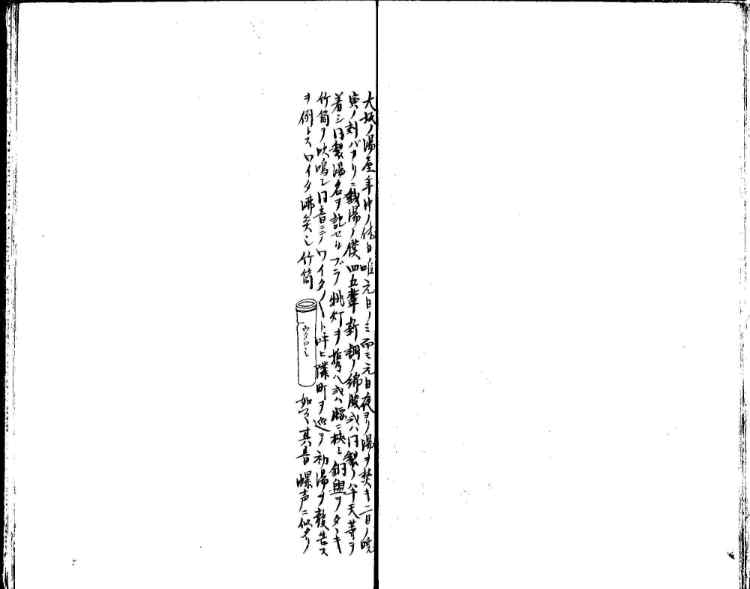 大坂ノ湯屋年中ノ休日唯元日ノミ而シテ元日夜ヨリ湯ヲ焚キ二日ノ暁
寅ノ刻バカリニ銭湯ノ僕四五輩新調ノ綿服或ハ同製ノ半天等ヲ
着シ同製湯名ヲ記セルブラ挑灯ヲ携ヘ或ハ腰ニ挟ミ銅盥ヲタヽキ
竹筒ヲ吹鳴シ同音ニワイタ〳〵ト呼ヒ隣町ヲ巡リ初湯ヲ報告ス
ヲ例トスワイタ沸矣也竹筒
如此其音螺声ニ似タリ